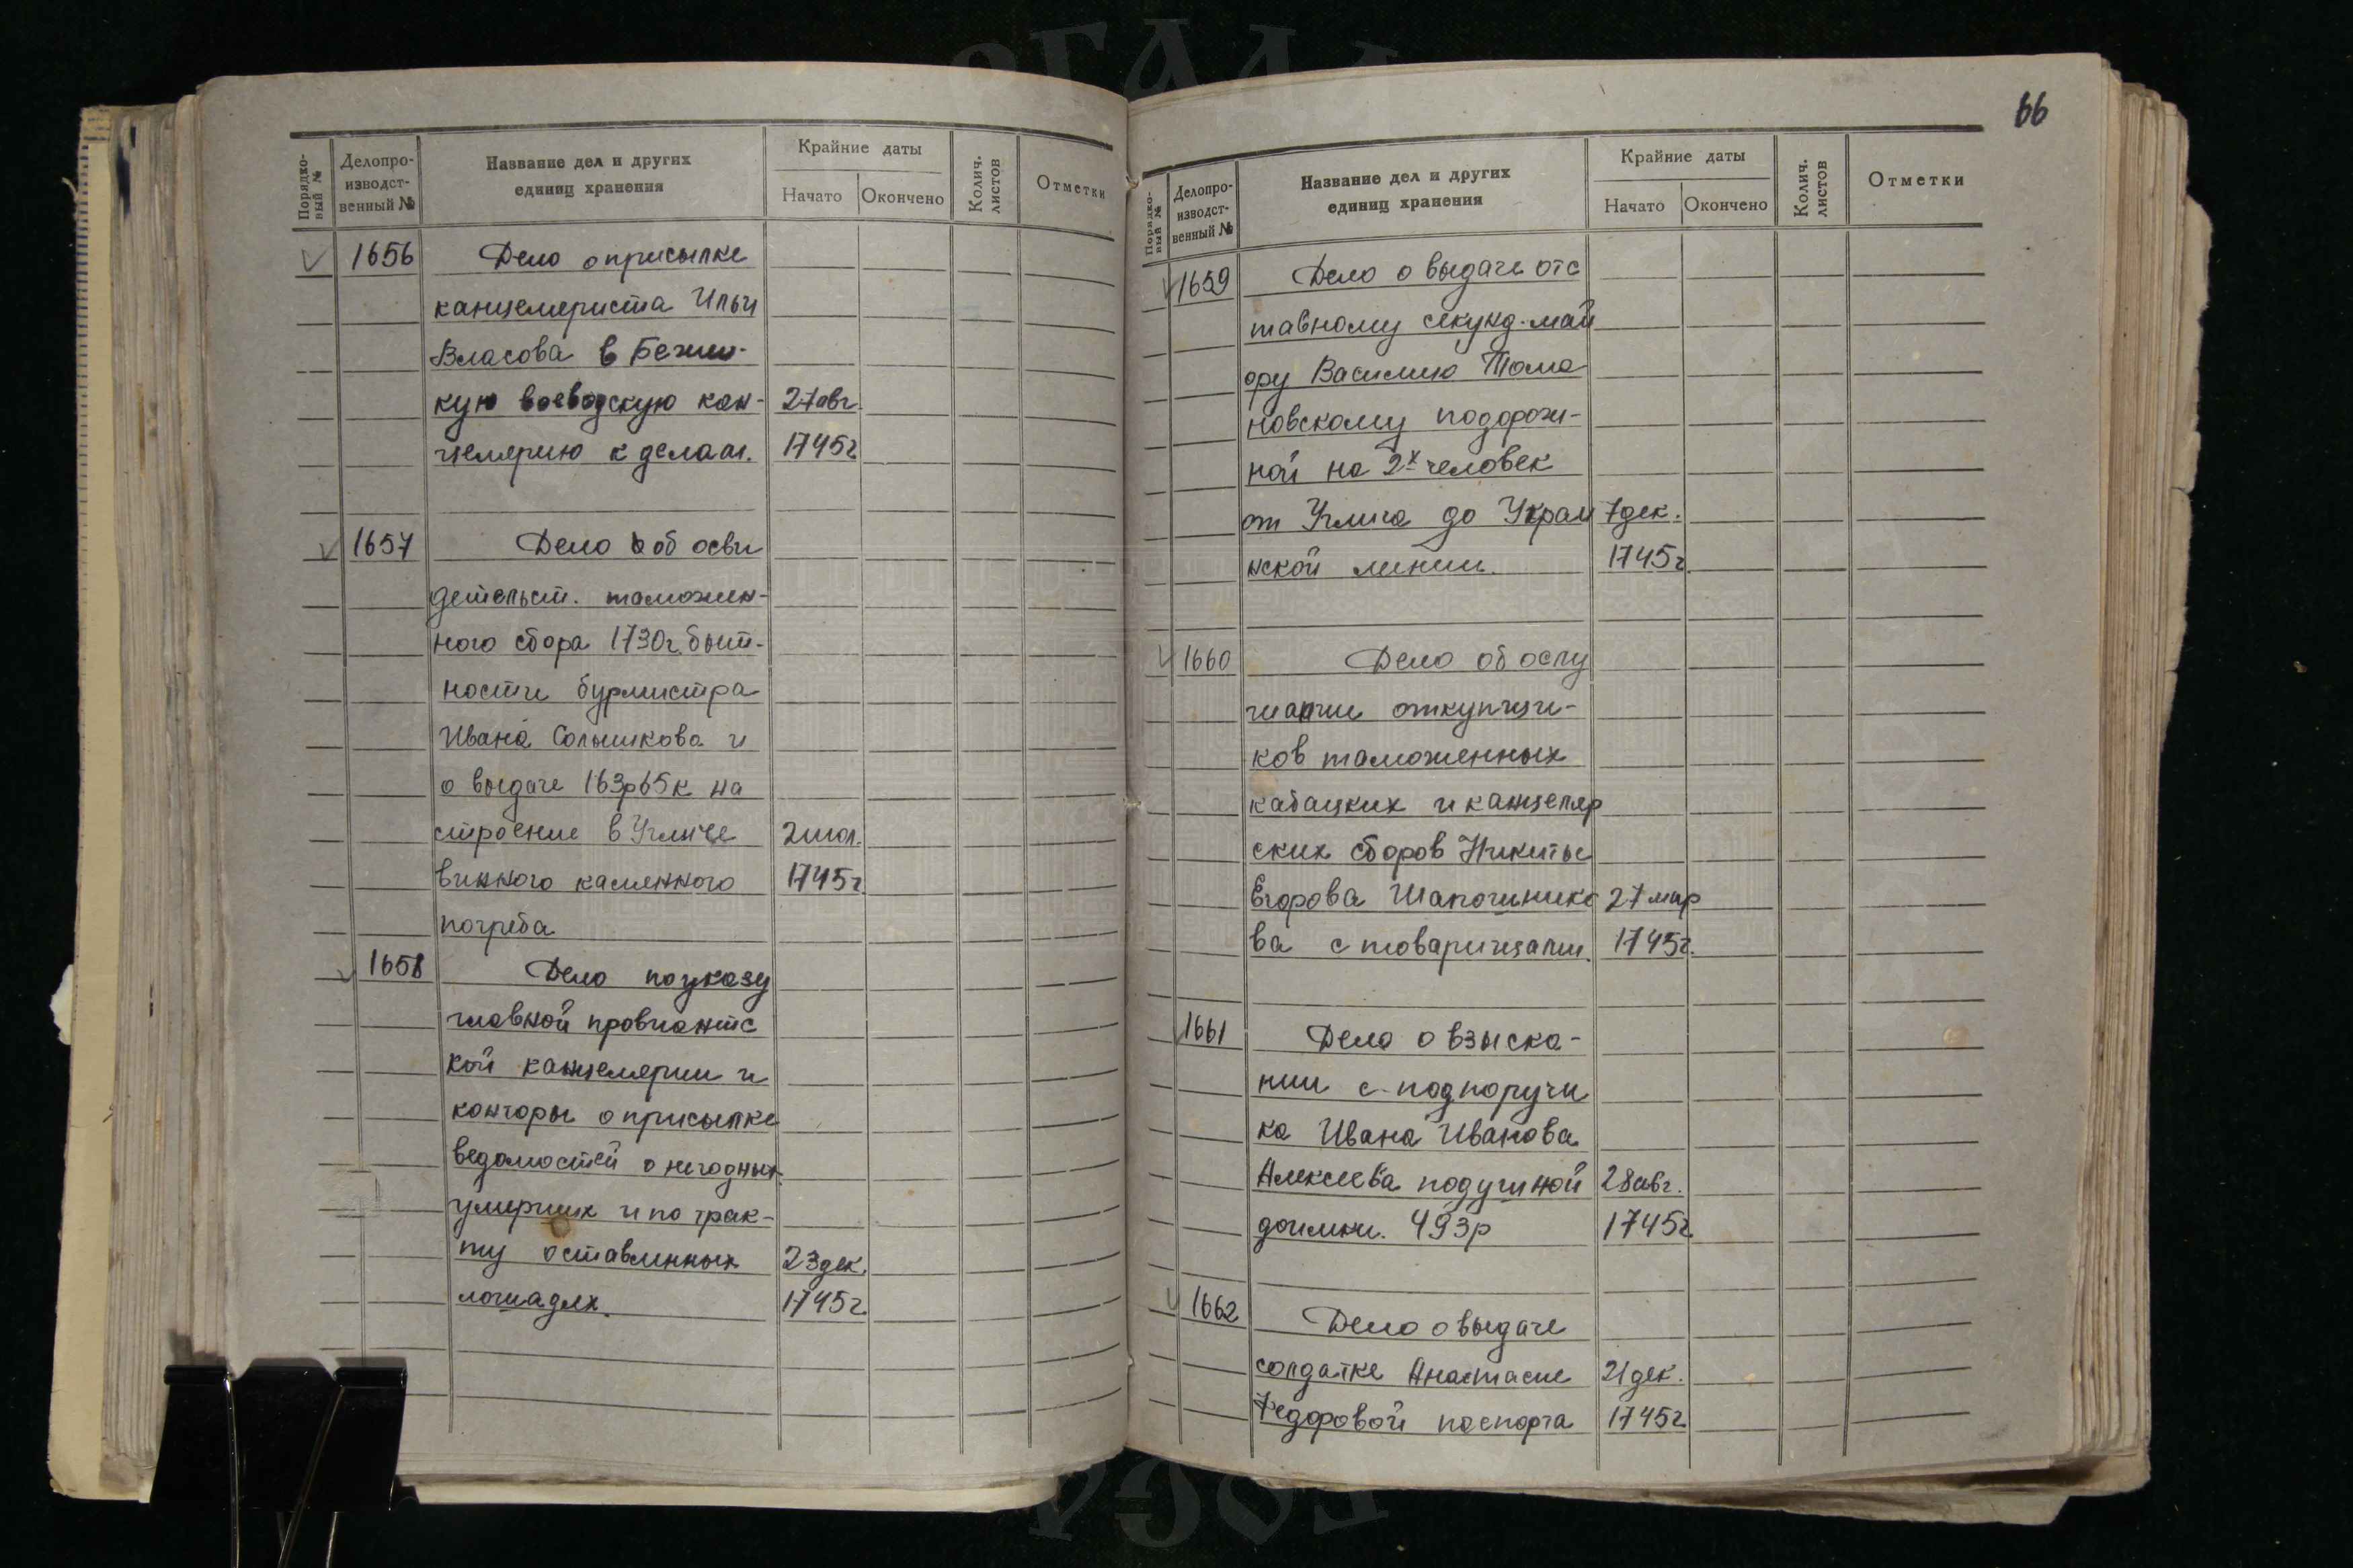 Порядко-
вый №
Делопро-
изводст-
венный №
Название дел и других
единиц хранения
Крайние даты
Начато
Окончено
Колич.
листов
Отметки
1656 Дело о присылке
канцеляриста Ильи
Власова в Бежец-
кую воеводскую кан- 27 авг.
целярию к делам. 1745г.
1657 Дело об осви
детельст. таможен-
ного сбора 1730г. быт-
ности бурмистра
Ивана Солышкова и
о выдаче 163р65к на
строение в Угличе 2 июл.
винного каменного 1745г.
погреба
1658 Дело по указу
главной провиантс
кой канцелярии и
конторы о присылке
ведомостей о негодных
умерших и по трак-
ту оставленных 23 дек.
лошадях. 1745г.
66
Порядко-
вый №
Делопро-
изводст-
венный №
Название дел и других
единиц хранения
Крайние даты
Начато
Окончено
Колич.
листов
Отметки
1659 Дело о выдаче отс
тавному секунд-май
ору Василию Тома
новскому подорож-
ной на 2х человек
от Углича до Украи 7 дек.
нской линии. 1745г.
1660 Дело об ослу
шании откупщи-
ков таможенных
кабацких и канцеляр
ских сборов Никиты
Егорова Шапошнико 27 мар
ва с товарищами. 1745г.
1661 Дело о взыска-
нии с подпоручи
ка Ивана Иванова
Алексеева подушной 28 авг.
доимки. 493р 1745г.
1662 Дело о выдаче
солдатке Анастасие 21 дек.
Федоровой паспорта 1745г